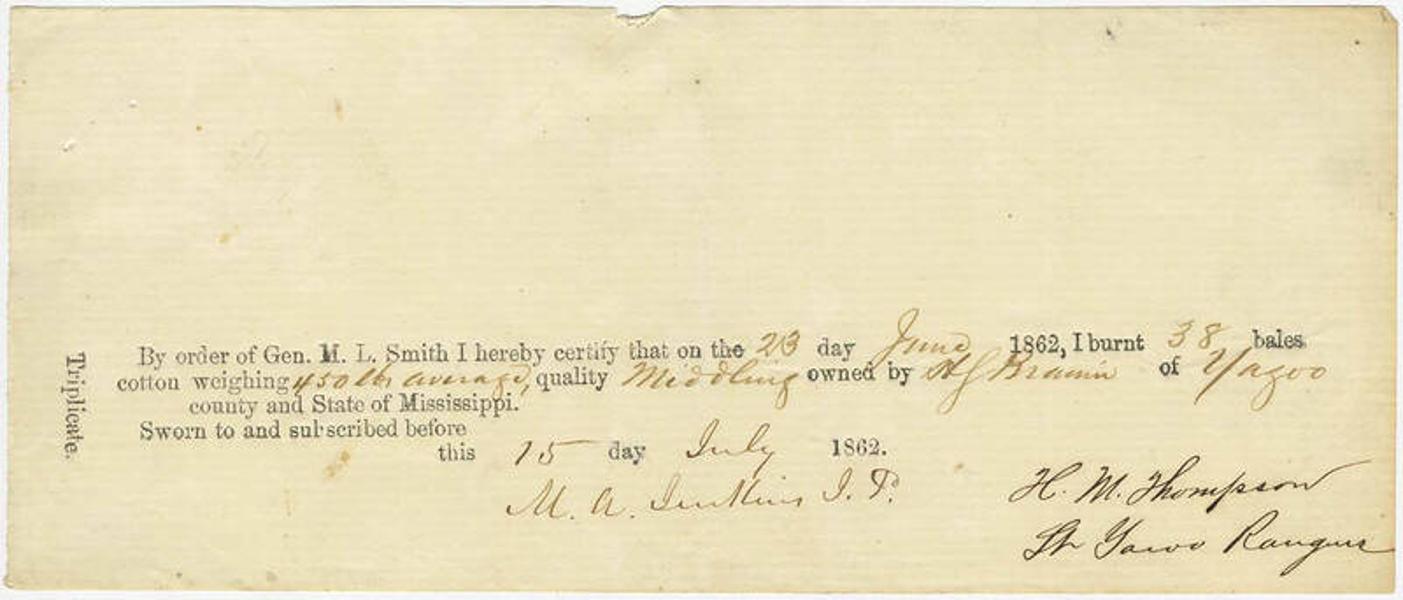 Triplicate.
By order of Gen. M. L. Smith I hereby certify that on the 23 day June 1862, I burnt 38 bales
cotton weighing 450 lbs average, quality Middling owned by of Yazoo
county and State of Mississippi.
Sworn to and subscribed before
this 15 day July 1862.
M. A. Jenkins J. P.
H. M. Thompson
Lt Yazoo Rangers